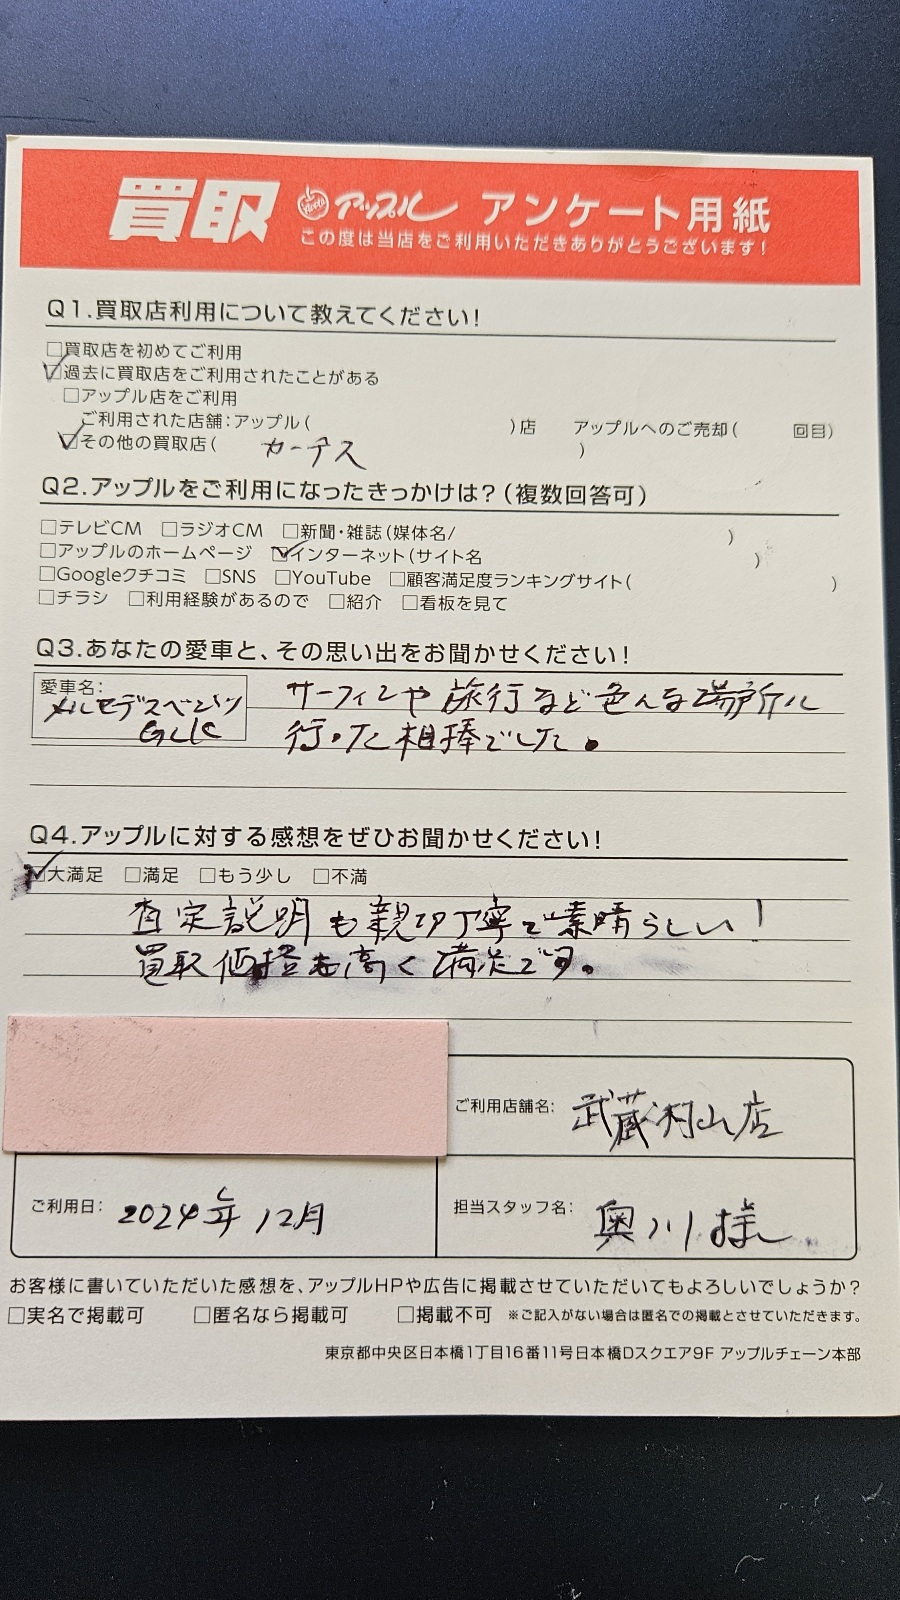 買取 アップル アンケート用紙
この度は当店をご利用いただきありがとうございます!
Q1.買取店利用について教えてください!
□買取店を初めてご利用
☑過去に買取店をご利用されたことがある
□アップル店をご利用
ご利用された店舗:アップル( )店 アップルへのご売却( 回目)
☑その他の買取店( カーチス )
Q2.アップルをご利用になったきっかけは?(複数回答可)
□テレビCM □ラジオCM □新聞・雑誌(媒体名/ )
□アップルのホームページ ☑インターネット(サイト名 )
□Googleクチコミ □SNS □YouTube □顧客満足度ランキングサイト( )
□チラシ □利用経験があるので □紹介 □看板を見て
Q3.あなたの愛車と、その思い出をお聞かせください!
愛車名:
メルセデスベンツ
GLK
サーフィンや旅行など色んな場所に
行った相棒でした。
Q4.アップルに対する感想をぜひお聞かせください!
☑大満足 □満足 □もう少し □不満
査定説明も親切丁寧で素晴らしい!
買取価格も高く満足です。
ご利用店舗名: 武蔵村山店
ご利用日: 2024年12月
担当スタッフ名: 奥川様
お客様に書いていただいた感想を、アップルHPや広告に掲載させていただいてもよろしいでしょうか?
□実名で掲載可 □匿名なら掲載可 □掲載不可 ※ご記入がない場合は匿名での掲載とさせていただきます。
東京都中央区日本橋1丁目16番11号日本橋Dスクエア9F アップルチェーン本部